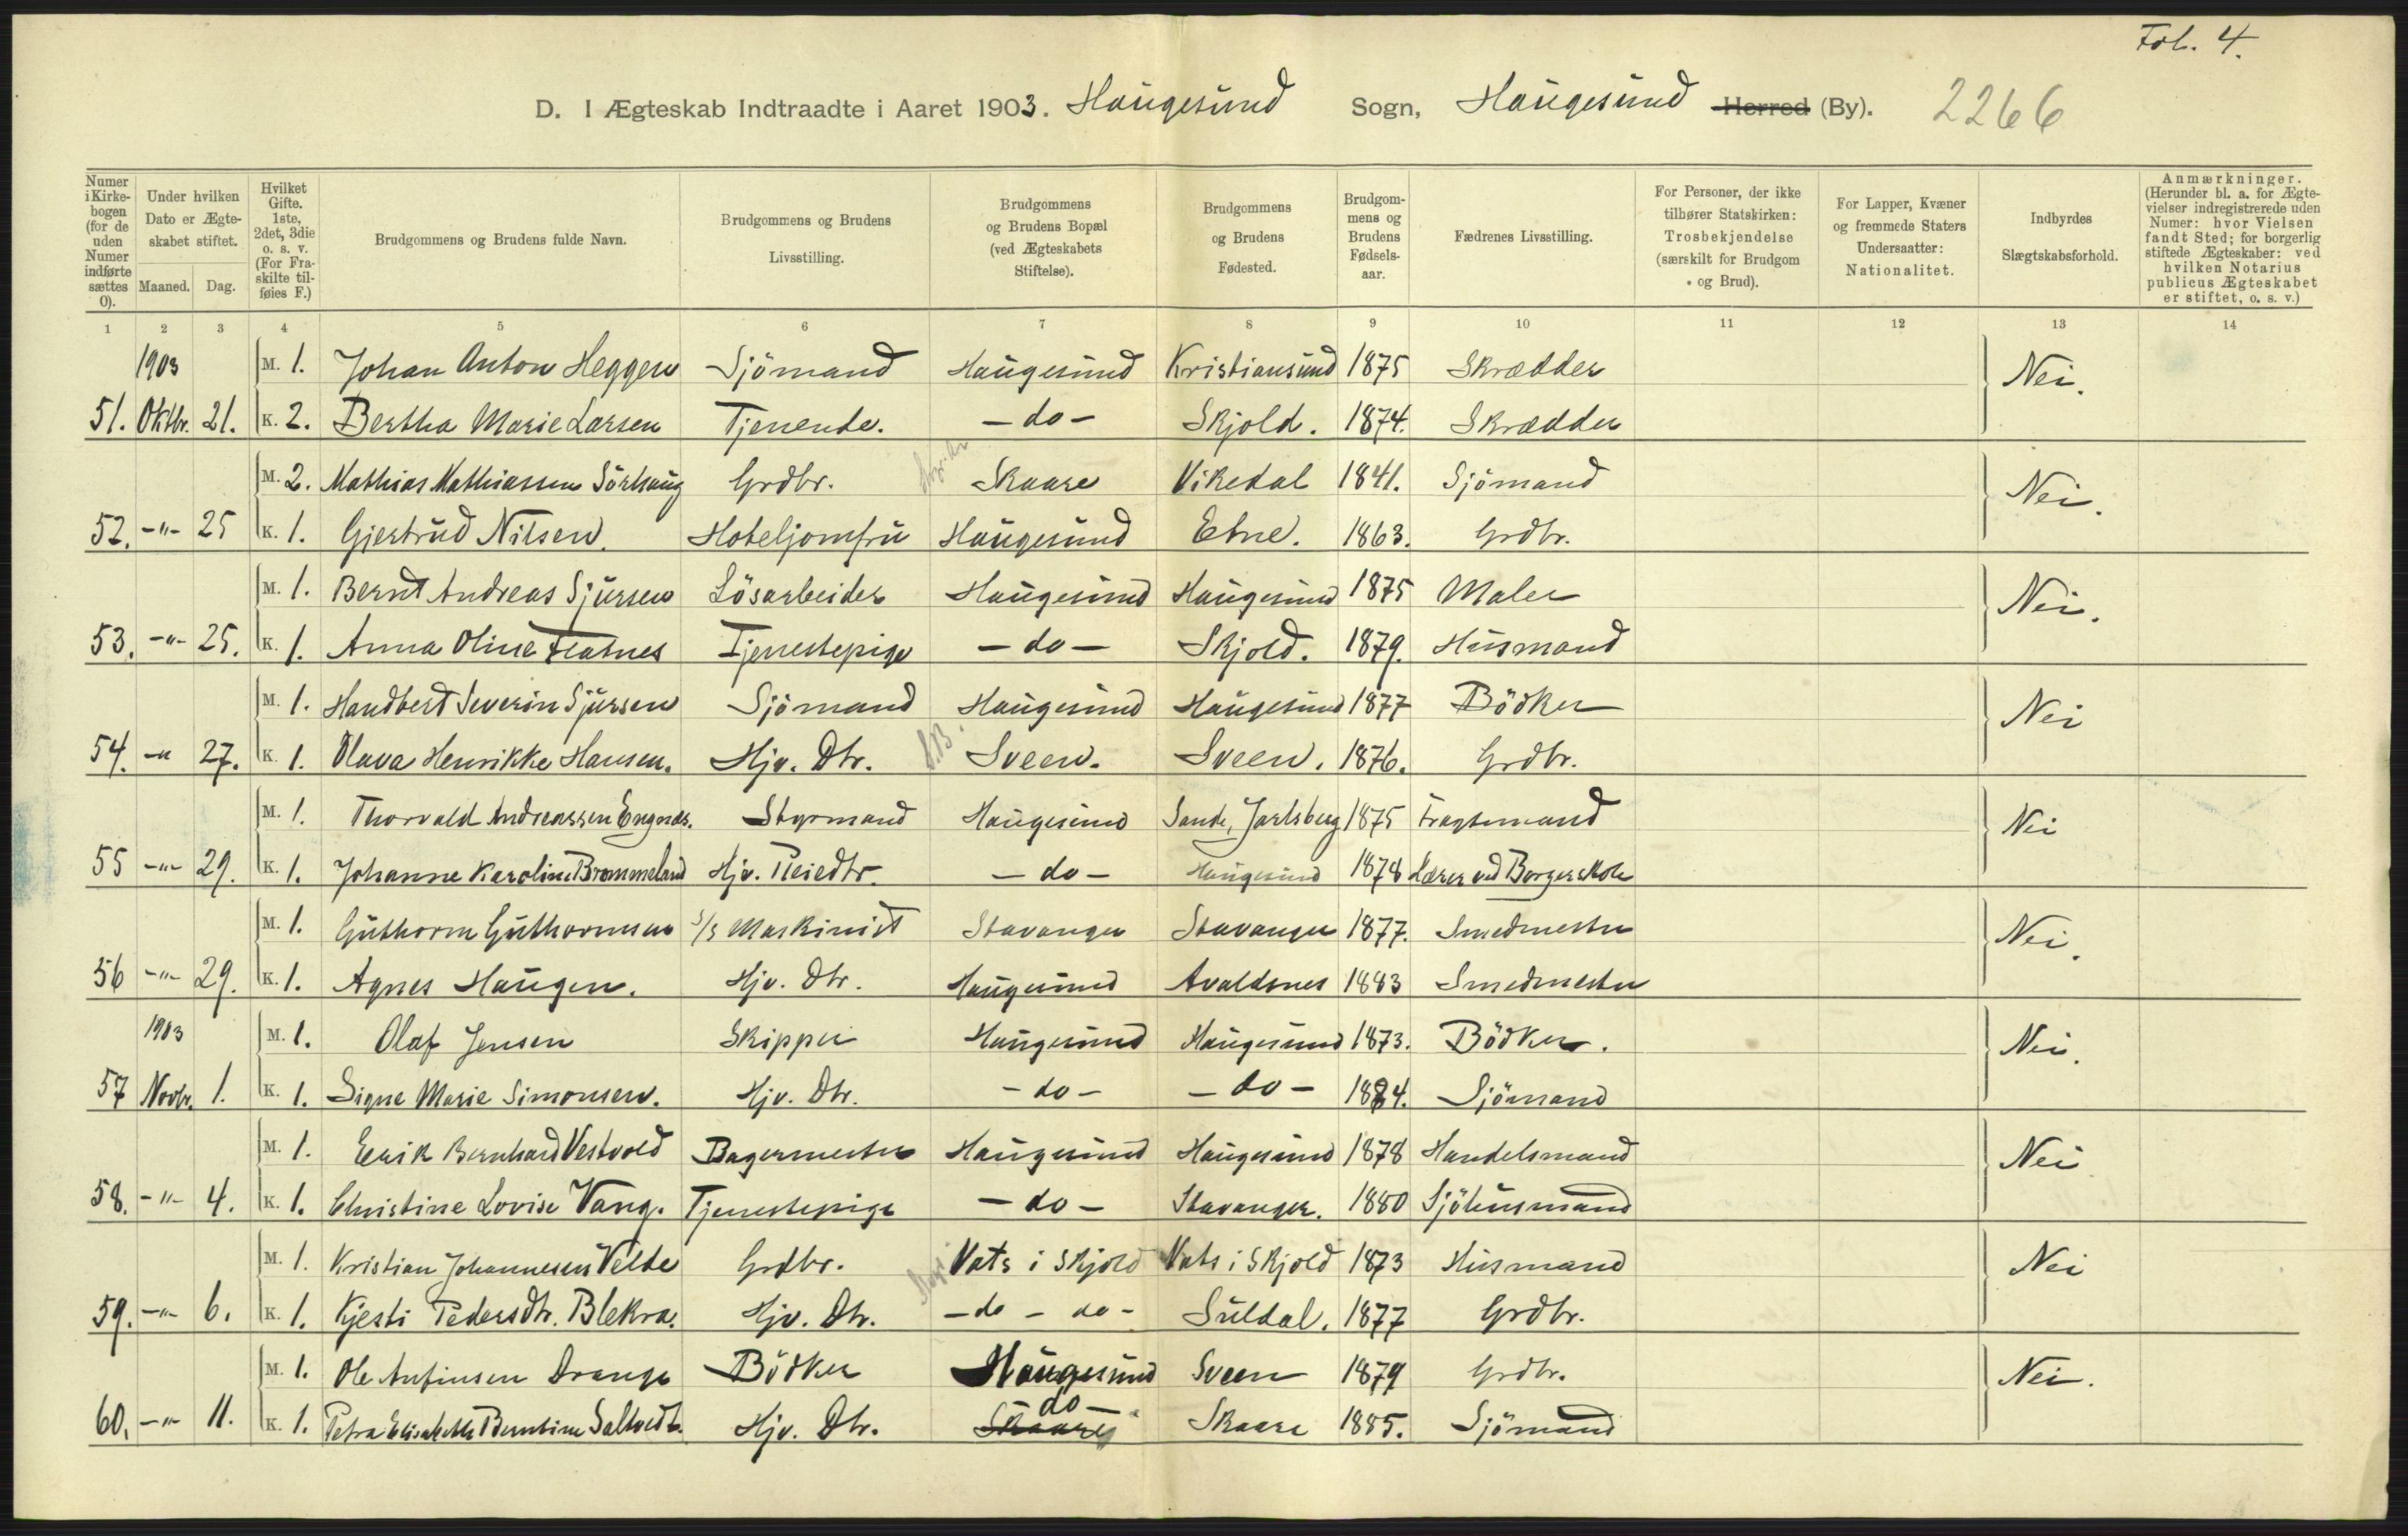 Fol. 4.
D. I Ægteskab Indtraadte i Aaret 1903. Haugesund Sogn, Haugesund Herred (By). 2266
Numer i Kirkebogen (for de uden Numer indførte sættes 0).
Under hvilken Dato er Ægteskabet stiftet.
Maaned. Dag.
Hvilket Gifte. 1ste, 2det, 3die o. s. v. (For Fraskilte tilføies F.)
Brudgommens og Brudens fulde Navn.
Brudgommens og Brudens Livsstilling.
Brudgommens og Brudens Bopæl (ved Ægteskabets Stiftelse).
Brudgommens og Brudens Fødested.
Brudgommens og Brudens Fødselsaar.
Fædrenes Livsstilling.
For Personer, der ikke tilhører Statskirken: Trosbekjendelse (særskilt for Brudgom og Brud).
For Lapper, Kvæner og fremmede Staters Undersaatter: Nationalitet.
Indbyrdes Slægtskabsforhold.
Anmærkninger. (Herunder bl. a. for Ægtevielser indregistrerede uden Numer: hvor Vielsen fandt Sted; for borgerlig stiftede Ægteskaber: ved hvilken Notarius publicus Ægteskabet er stiftet, o. s. v.)
1 2 3 4 5 6 7 8 9 10 11 12 13 14
1903 M. 1. Johan Anton Heggen Sjömand Haugesund Kristiansund 1875 Skrædder Nei.
51. Oktbr. 21. K. 2. Bertha Marie Larsen Tjenende. - do - Skjold. 1874. Skrædder
M. 2. Mathias Mathiassen Sörhaug Grdbr. Skaare Vikedal 1841. Sjömand Nei.
52. -"- 25 K. 1. Gjertrud Nilsen. Hoteljomfru Haugesund Etne. 1863. Grdbr.
M. 1. Bernt Andreas Sjursen Lösarbeider Haugesund Haugesund 1875 Maler Nei.
53. -"- 25. K. 1. Anna Oline Flatnes Tjenestepige - do - Skjold. 1879. Husmand
M. 1. Handbert Severin Sjursen Sjömand Haugesund Haugesund 1877 Bödker Nei
54. -" 27. K. 1. Olava Henrikke Hansen. Hjv. Dtr. Sveen. Sveen. 1876. Grdbr.
M. 1. Thorvald Andreassen Engnæs. Styrmand Haugesund Sande, Jarlsberg 1875 Fragtemand Nei
55 -"- 29. K. 1. Johanne Karoline Brommeland Hjv. Pleiedtr. - do - Haugesund 1878 Lærer ved Borgerskole
M. 1. Guthorm Guthormsen S/S Maskinist Stavanger Stavanger 1877. Smedmester Nei.
56 -"- 29. K. 1. Agnes Haugen. Hjv. Dtr. Haugesund Avaldsnes 1883 Smedmester
1903 M. 1. Olaf Jensen Skipper Haugesund Haugesund 1873. Bödker. Nei.
57 Novbr. 1. K. 1. Signe Marie Simonsen. Hjv. Dtr. - do - - do - 1884. Sjömand
M. 1. Eerik Bernhard Vestvold Bagermester Haugesund Haugesund 1878 Handelsmand Nei
58. -"- 4. K. 1. Christine Lovise Vang. Tjenestepige - do - Stavanger. 1880 Sjöhusmand
M. 1. Kristian Johannesen Velde Grdbr. Vats i Skjold Vats i Skjold 1873 Husmand Nei
59. -"- 6. K. 1. Kjesti Pedersdtr. Blekra. Hjv. Dtr. - do - do - Suldal. 1877 Grdbr.
M. 1. Ole Anfinsen Drange Bödker Haugesund Sveen 1879 Grdbr. Nei.
60. -"- 11. K. 1. Petra Elisabeth Berntine Saltvedt. Hjv. Dtr. Skaare do - Skaare 1885. Sjömand